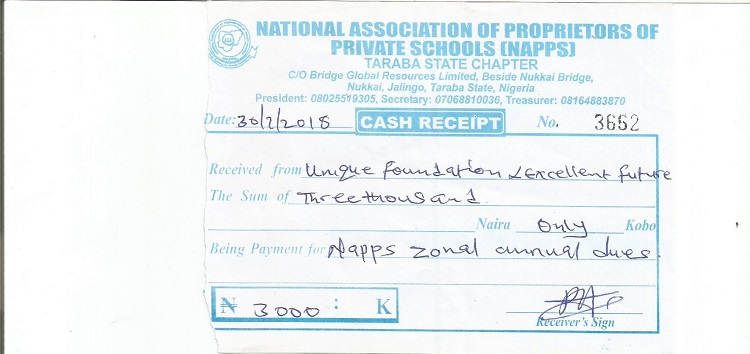 NATIONAL ASSOCIATION OF PROPRIETORS OF
PRIVATE SCHOOLS (NAPPS)
TARABA STATE CHAPTER
C/O Bridge Global Resources Limited, Beside Nukkai Bridge,
Nukkai, Jalingo, Taraba State, Nigeria
President: 08025519305, Secretary: 07068810036, Treasurer: 08164883870
Date: 30/2/2018 CASH RECEIPT No. 3652
Received from Unique Foundation & Excellent future
The Sum of Three thousand
Naira Only Kobo
Being Payment for Napps zonal annual dues.
₦ 3000 : K
Receiver's Sign